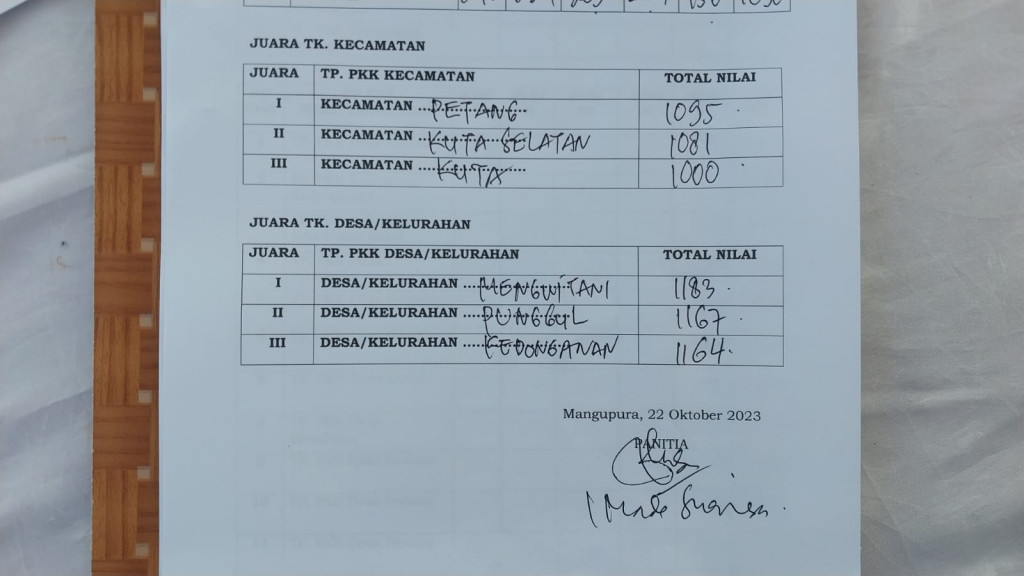 JUARA TK. KECAMATAN
JUARA TP. PKK KECAMATAN TOTAL NILAI
I KECAMATAN ...PETANG... 1095
II KECAMATAN ...KUTA SELATAN 1081
III KECAMATAN ...KUTA... 1000
JUARA TK. DESA/KELURAHAN
JUARA TP. PKK DESA/KELURAHAN TOTAL NILAI
I DESA/KELURAHAN ...MENGWITANI 1183
II DESA/KELURAHAN ...PUNGGUL 1167
III DESA/KELURAHAN ...KEDONGANAN 1164
Mangupura, 22 Oktober 2023
PANITIA
I Made